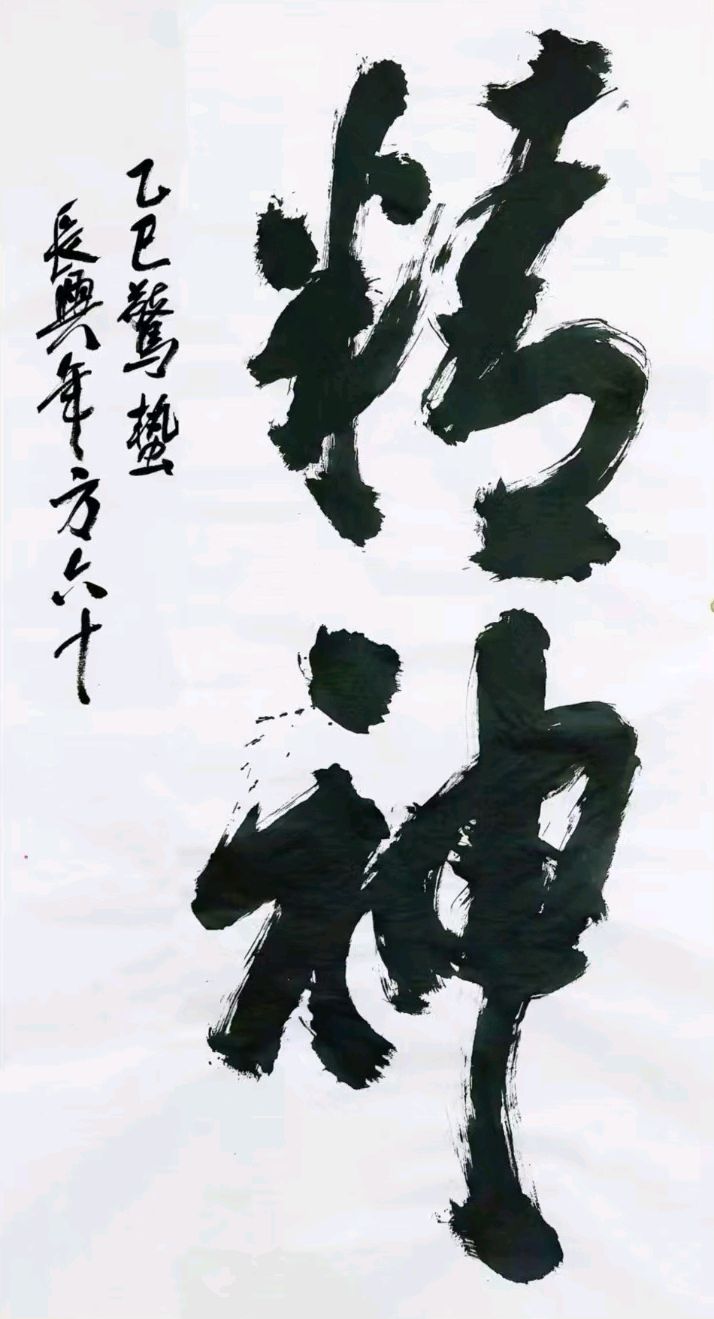 精神
乙巳驚蟄
長興年方六十